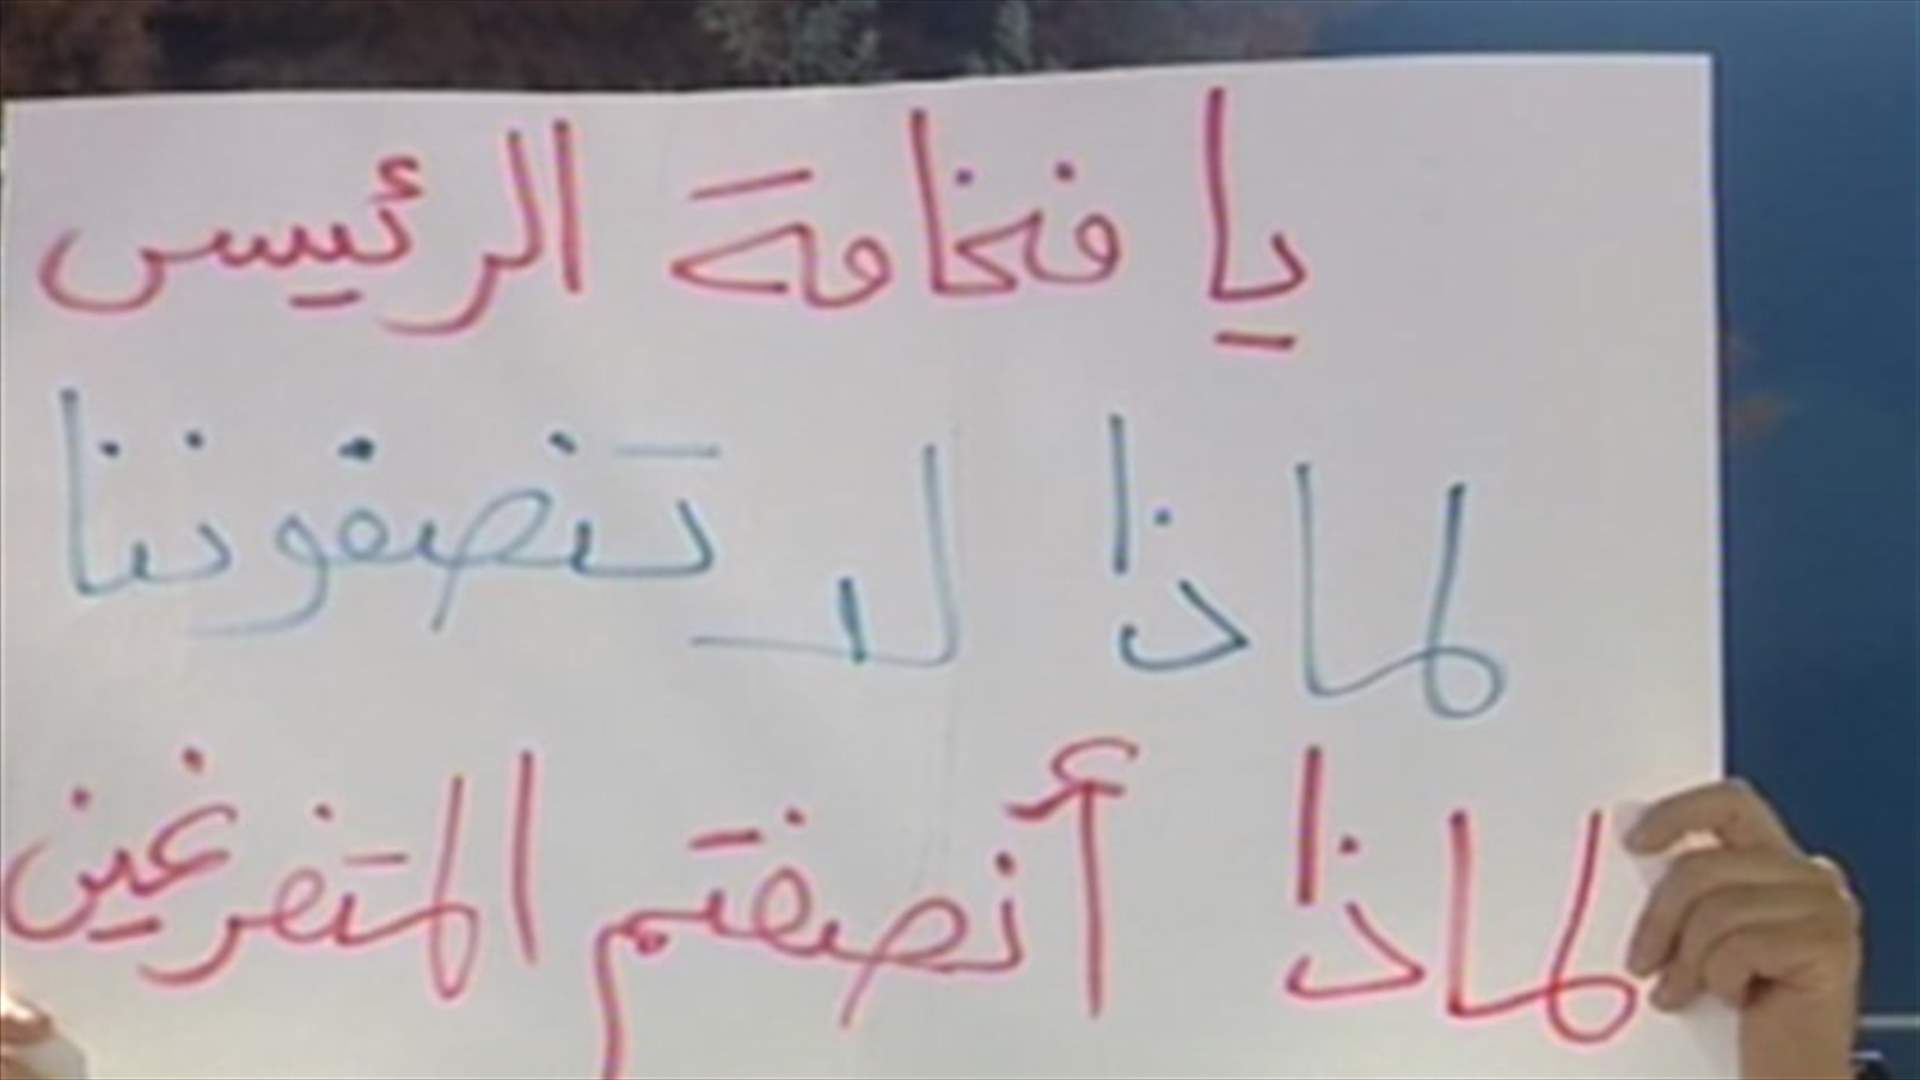 يا فخامة الرئيس
لماذا لا تنصفوننا
لماذا أنصفتم المتفرغين